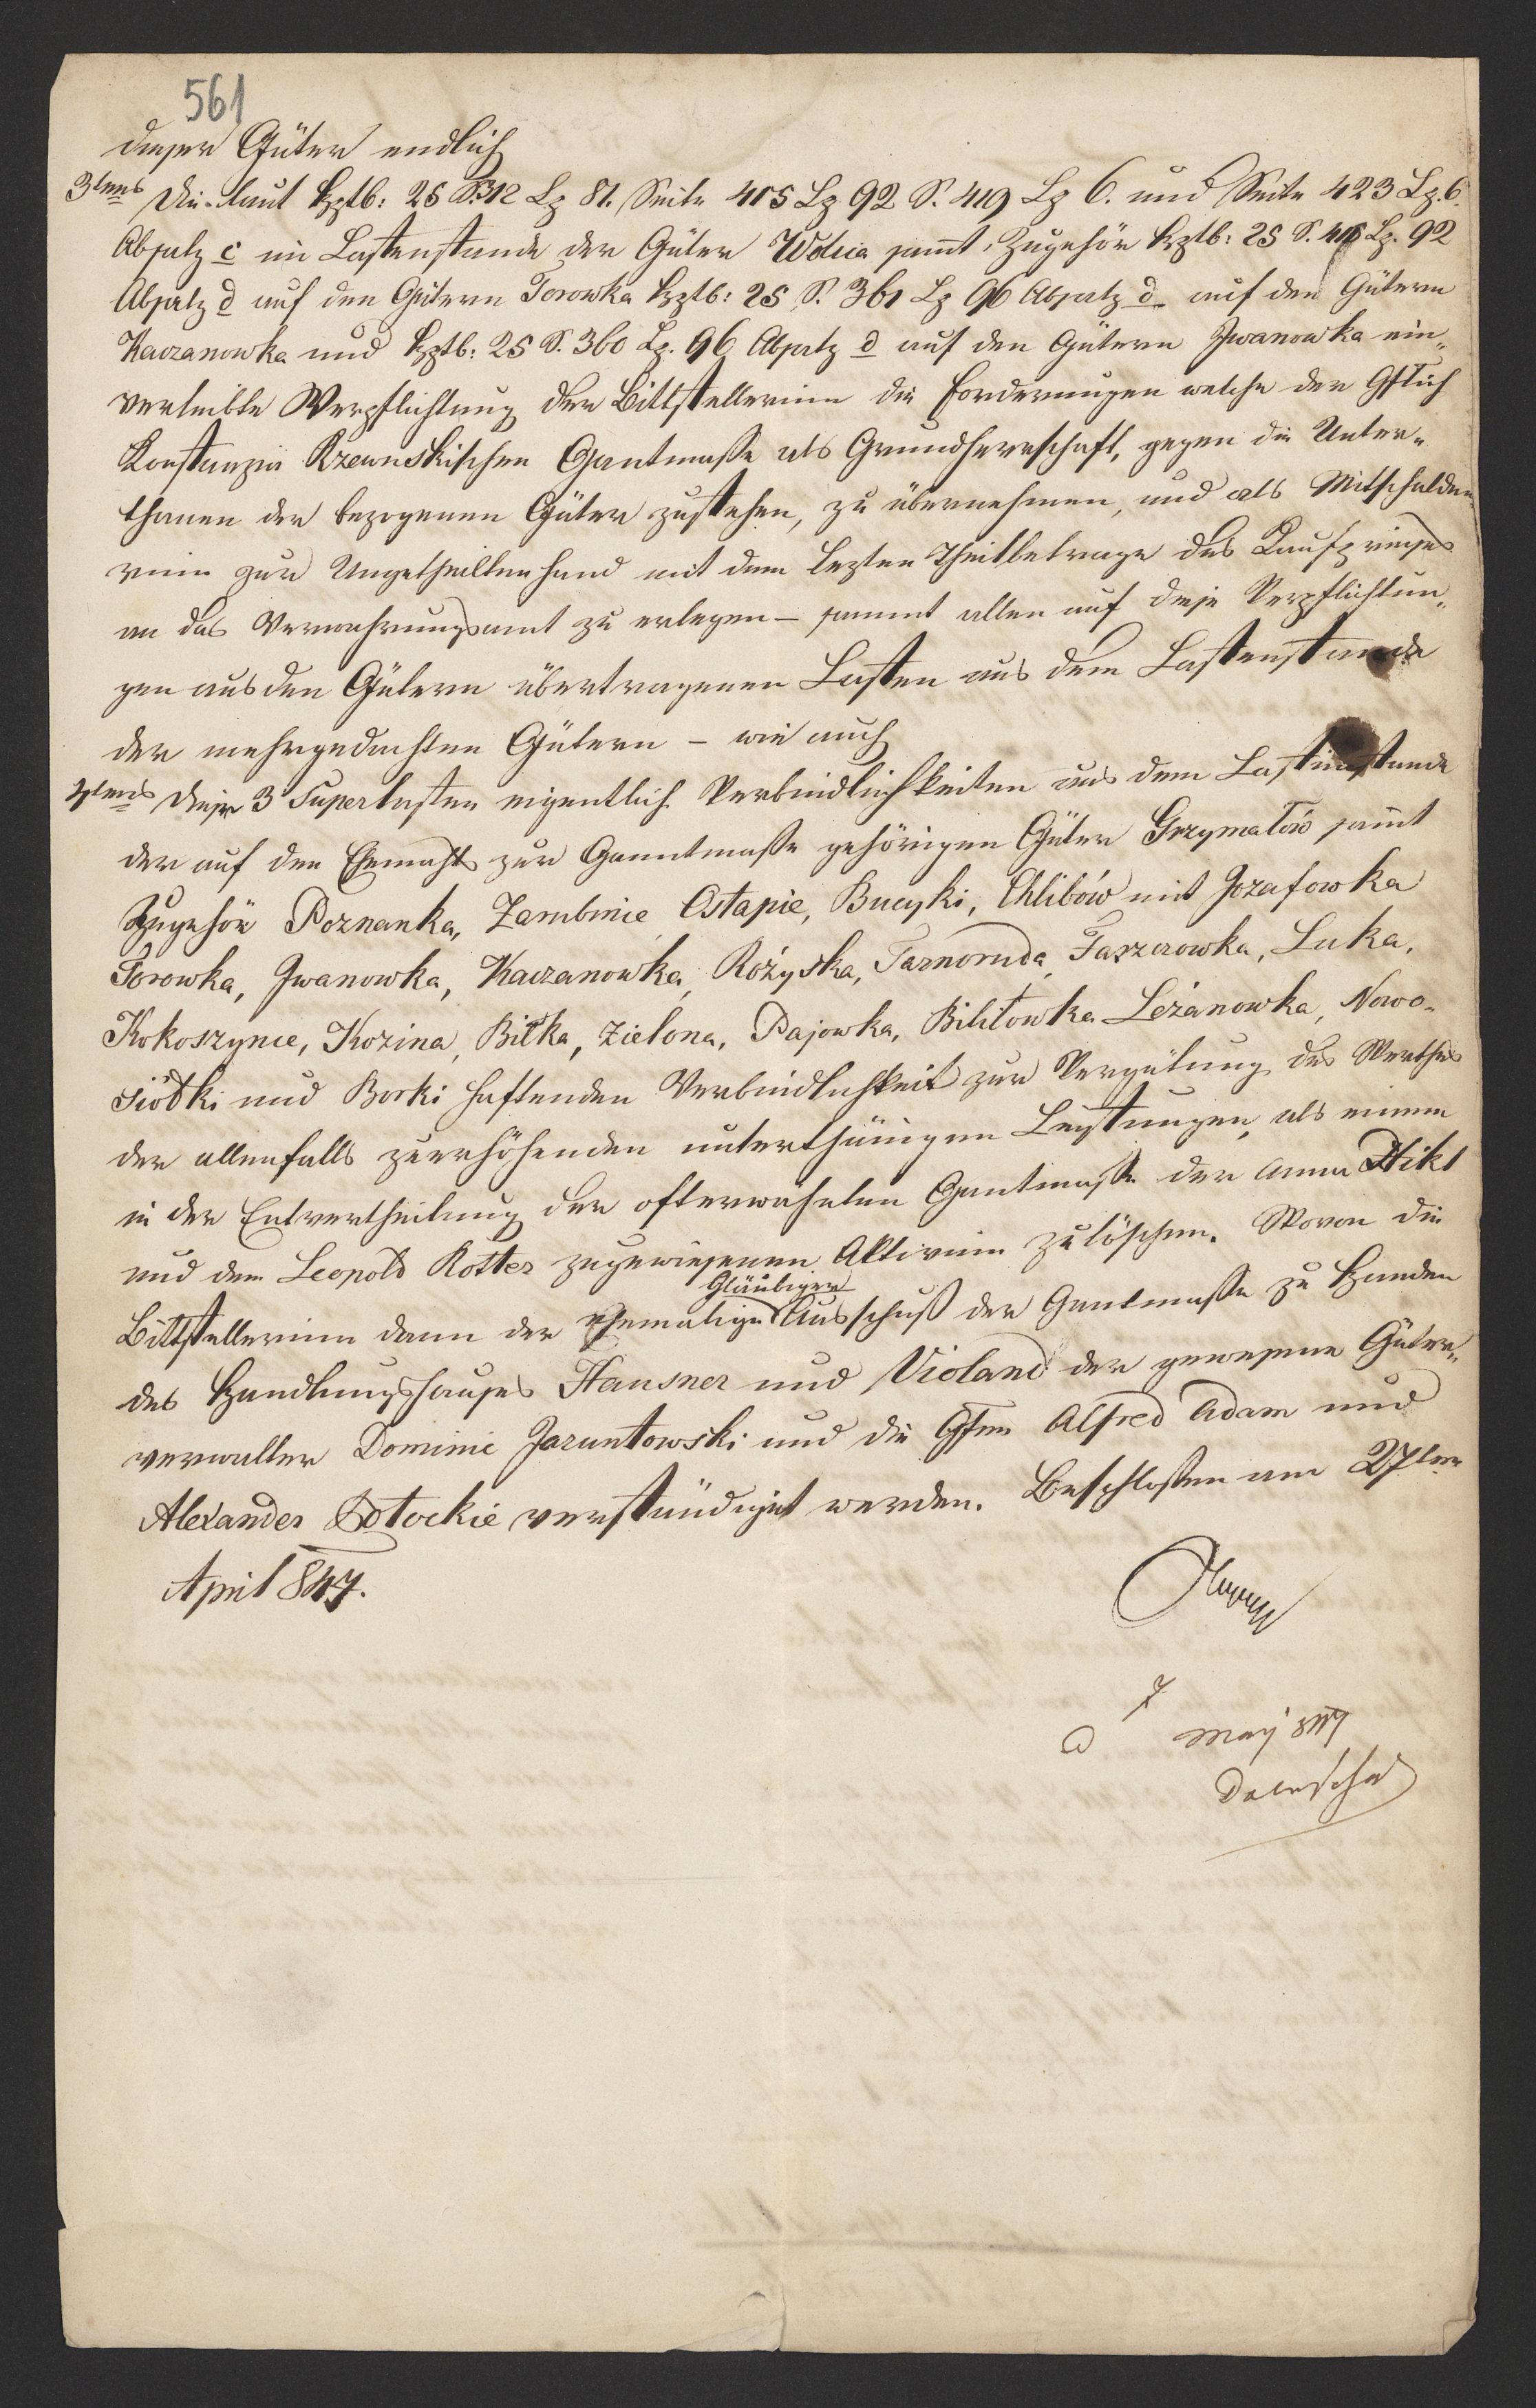 561
dieser Güter endlich
3tens Die laut Hptb: 25 S. 312 Lz 81. Seite 415 Lz 92 S. 419 Lz 6. und Seite 423 Lz. 6.
Absatz c im Lastenstande der Güter Wolica sammt Zugehör Hptb: 25 S. 416 Lz. 92
Absatz d auf den Gütern Torowka Hptb: 25 S. 361 Lz 96 Absatz d auf den Gütern
Kaczanowka und Hptb: 25 S. 360 Lz. 96 Absatz d auf den Gütern Iwanowka ein„
verleibte Verpflichtung der Bittstellerinn die Forderungen welche der Gflich
Konstanzia Rzewuskischen Gantmasse als Grundherrschaft, gegen die Unter„
thanen der bezogenen Güter zustehen, zu übernehmen, und als Mitschuldne„
rinn zur Ungetheiltenhand mit dem lezten Theilbetrage des Kaufpreises
an das Verwahrungsamt zu erlegen – sammt allen auf diese Verpflichtun„
gen aus den Gütern übertragenen Lasten aus dem Lastenstande
der mehrgedachten Gütern – wie auch
4tens diese 3 Superlasten eigentlich Verbindlichkeiten aus dem Lastenstande
der auf den Ehemals zur Ganntmasse gehörigen Güter Grzymałów sammt
Zugehör Poznanka, Zarubince Ostapie, Bucyki, Chlibów mit Jozafowka
Torowka, Iwanowka, Kaczanowka, Rożyska, Tarnoruda, Faszczowka, Luka,
Kokoszynce, Kozina, Bilka, Zielona, Pajowka, Bilitowka Leżanowka, Nowo„
siółki und Borki haftenden Verbindlichkeit zur Vergütung des Werthes
der allenfalls zuerhöhenden unterthänigen Leistungen, als einem
in der Entvertheilung der ofterwähnten Gantmasse der Anna Hikl
und dem Leopold Kotter zugewiesenen Aktivum zu löschen. Wovon die
Bittstellerinn dann der Ehemalige Gläubiger Ausschuß der Gantmasse zu Handen
des Handlungshauses Hausner und Violand der gewesene Güter„
verwalter Dominic Jaruntowski und die Gfen Alfred Adam und
Alexander Potockie verständiget werden. Beschlossen am 27ten
April 847.
7
May 847